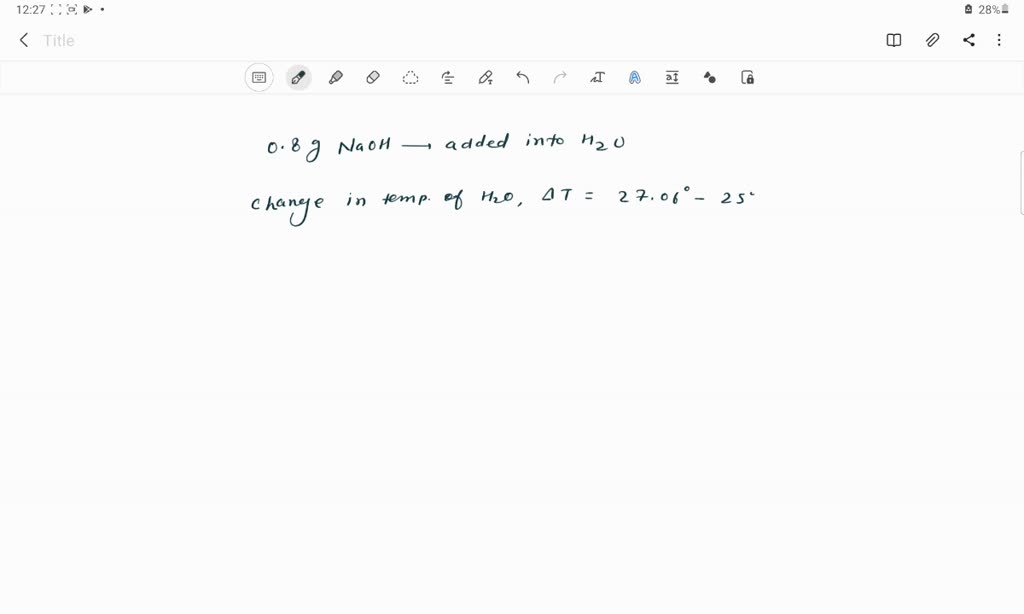 12:27 28%
Title
0.8g NaOH → added into H2O
change in temp. of H2O, ΔT = 27.06° - 25°